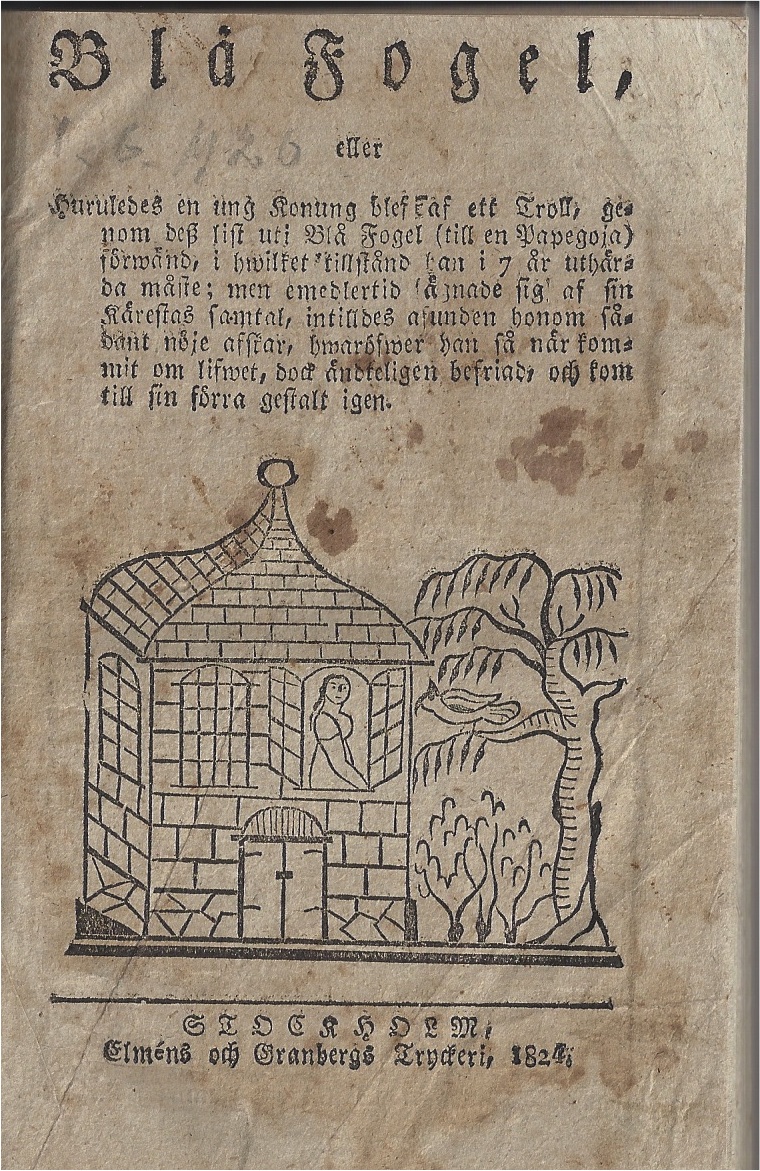 Blå Fogel,
eller
Huruledes en ung Konung blef af ett Troll, ge-
nom deß list uti Blå Fogel (till en Papegoja)
förwänd, i hwilket tillstånd han i 7 år uthär-
da måste; men emedlertid ägnade sig af sin
Kärestas samtal, intilldes afunden honom så-
dant nöje afskar, hwaröfwer han så när kom-
mit om lifwet, dock ändteligen befriad, och kom
till sin förra gestalt igen.
STOCKHOLM,
Elméns och Granbergs Tryckeri, 1824.